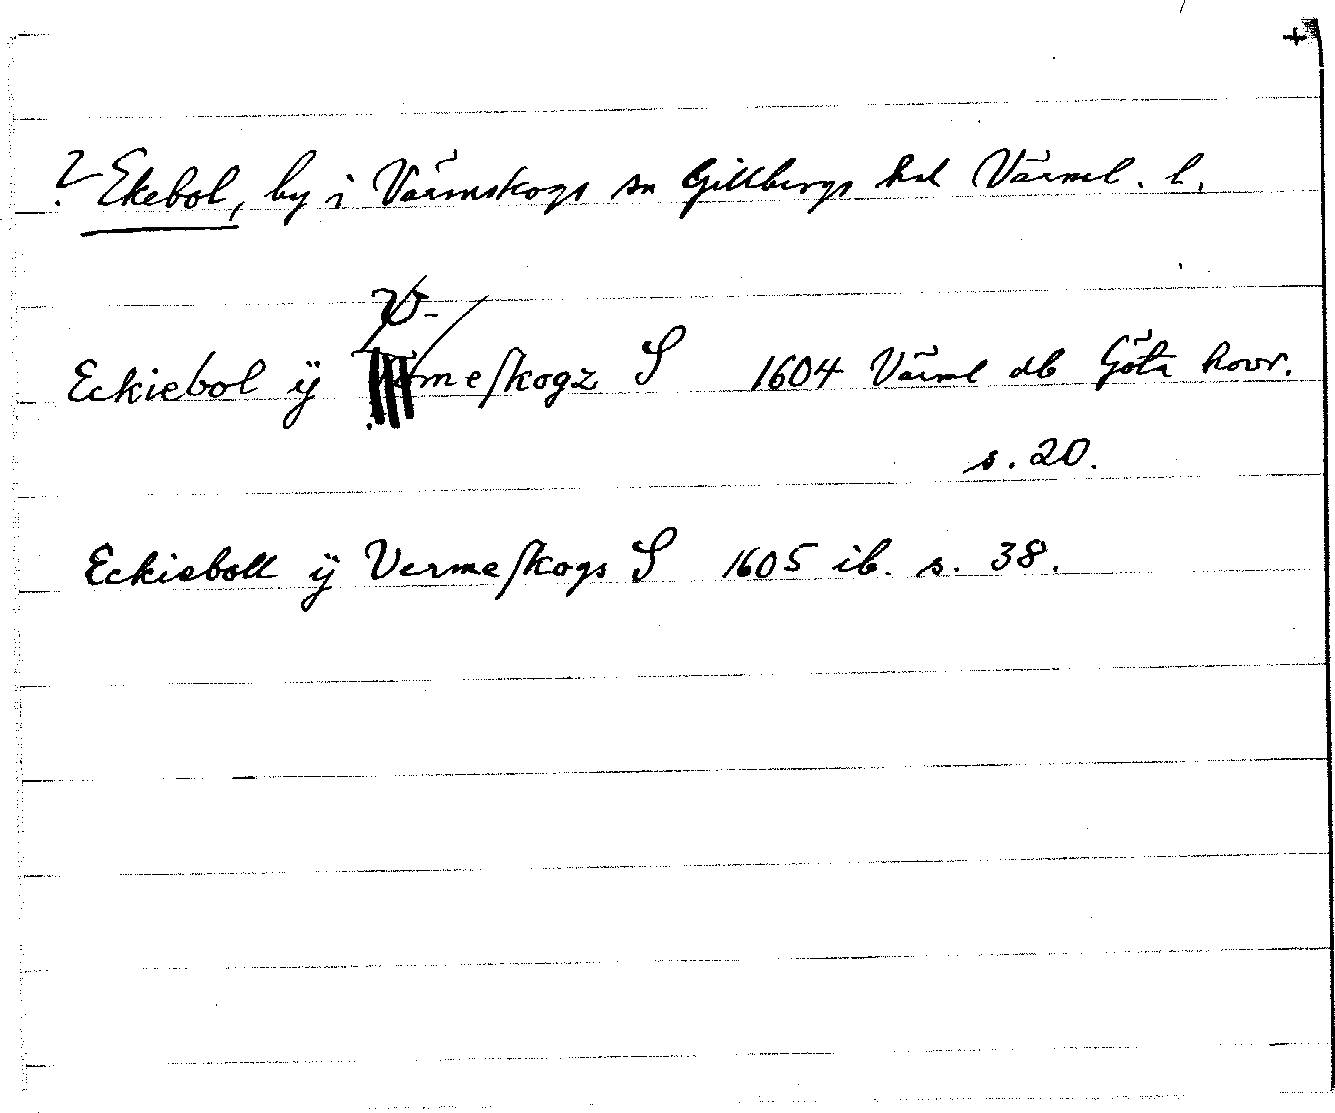 +
? Ekebol, by i Värmskogs sn Gillbergs hd Värml. l.
V-
Eckiebol ÿ meſkogz S 1604 Värml db Göta hovr.
s. 20.
Eckieboll ÿ Vermeſkogs S 1605 ib. s. 38.